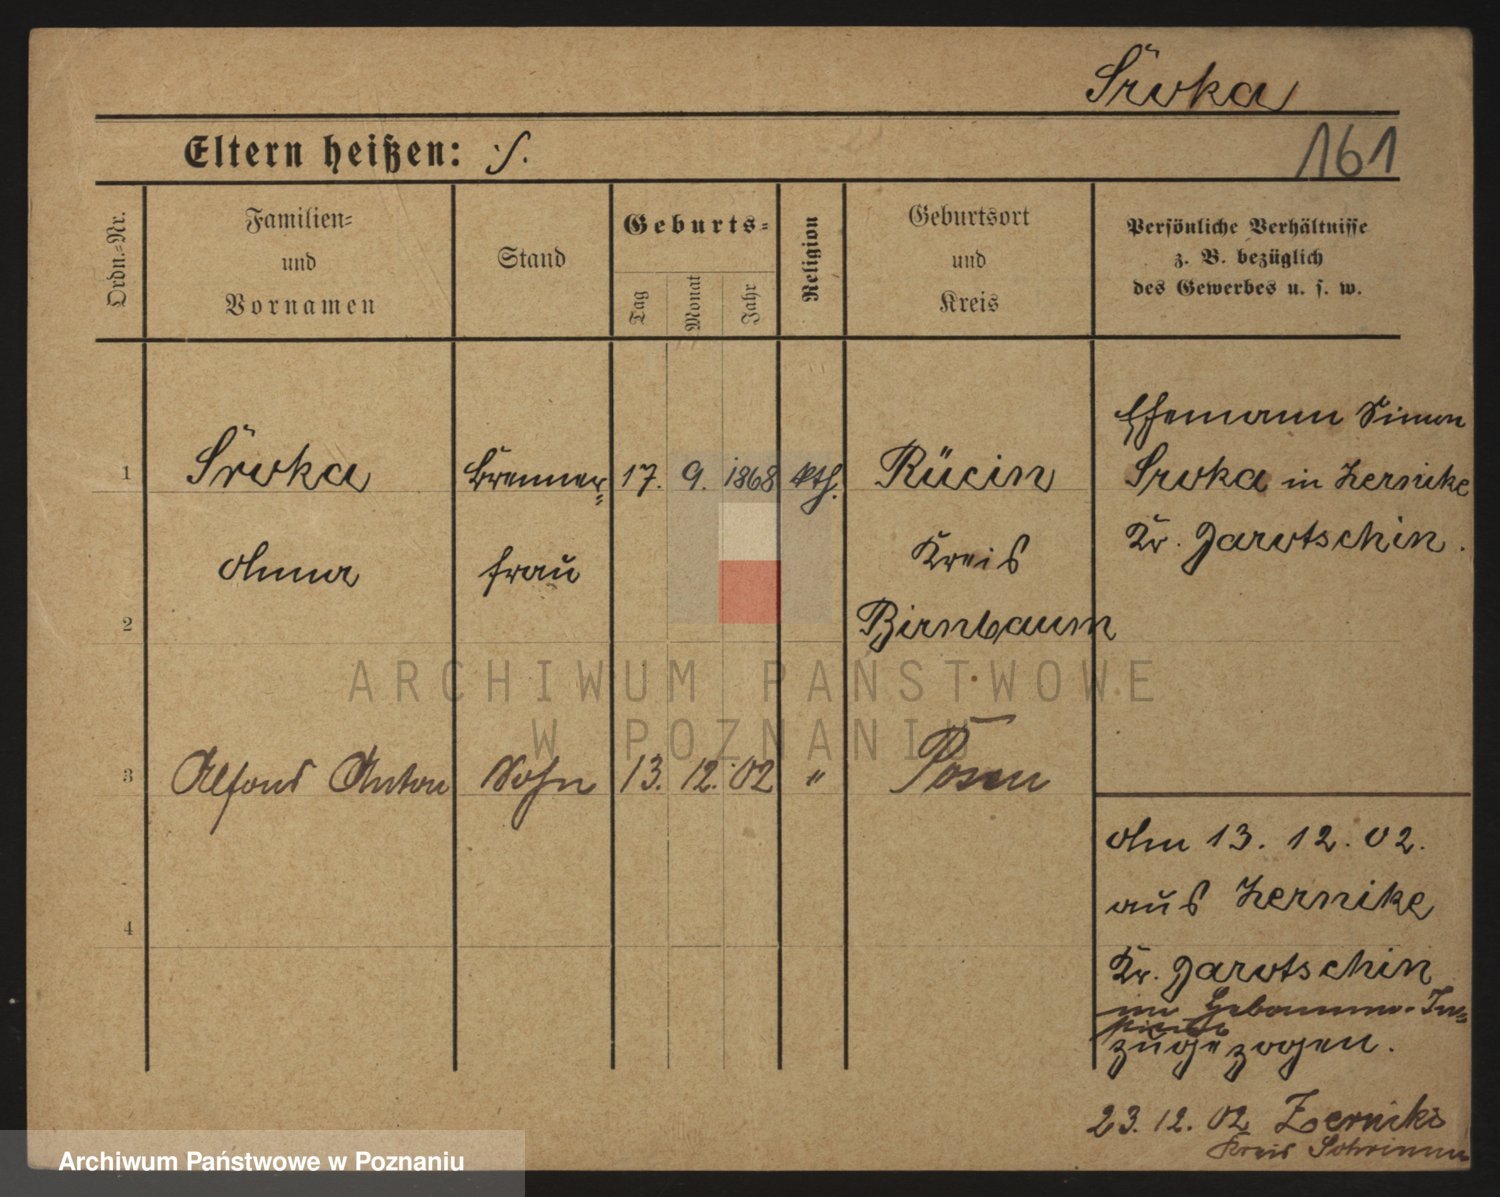 Srvka
Eltern heißen: ./.
161
Ordn.-Nr.
Familien-
und
Vornamen
Stand
Geburts-
Tag
Monat
Jahr
Religion
Geburtsort
und
Kreis
Persönliche Verhältnisse
z. B. bezüglich
des Gewerbes u. s. w.
Ehemann Simon
1 Srvka Brenner- 17. 9. 1868 kth. Srvka in Zernike
Anna frau Kreis Kr. Jarotschin.
2 Birnbaum
ARCHIWUM PAŃSTWOWE
W POZNANIU
3 Alfons Anton Sohn 13. 12. 02 " Posen
Am 13. 12. 02.
aus Zernike
4
Kr. Jarotschin
im
zugezogen.
23. 12. 02 Zerniki
Kreis Schrimm
Archiwum Państwowe w Poznaniu